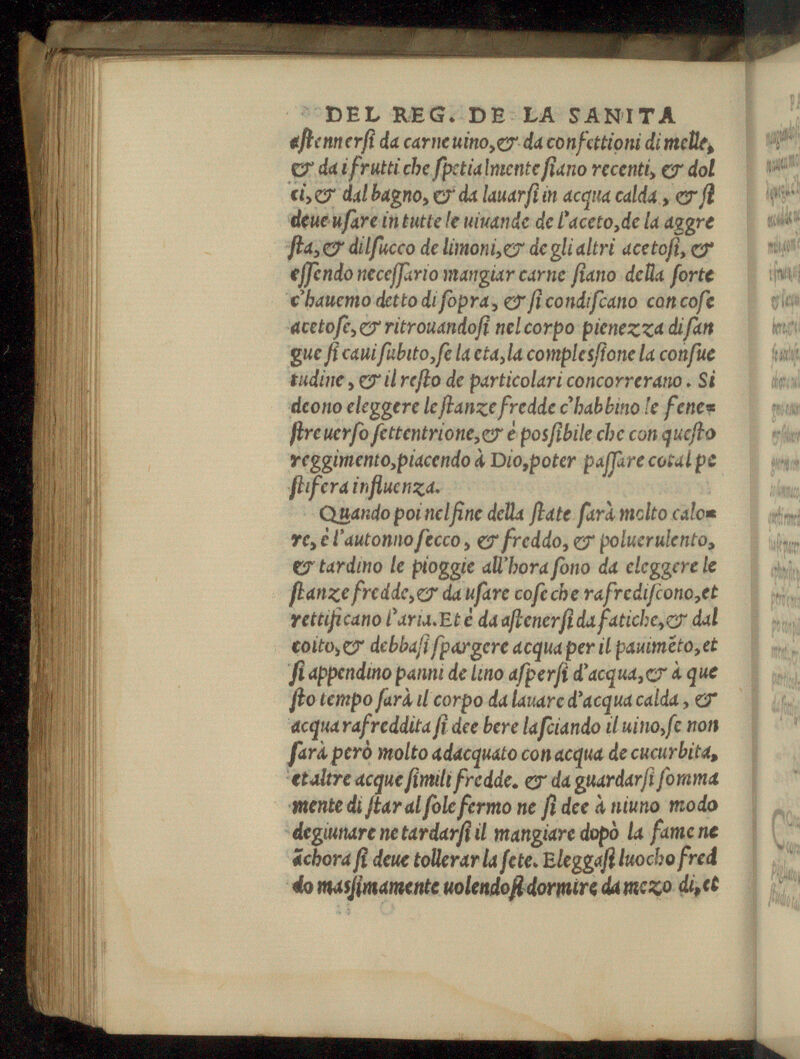 DEL REG. DE LA SANITA
astennersi da carne uino,& da confettioni di melle,
& da i frutti che spetialmente siano recenti, & dol
ci,& dal bagno, & da lauarsi in acqua calda, & si
deue usare in tutte le uiuande de l'aceto,de la aggre
sta,& dil succo de limoni,& de gli altri acetosi, &
essendo necessario mangiar carne siano della sorte
c'hauemo detto di sopra, & si condiscano con cose
acetose,& ritrouandosi nel corpo pienezza di san
gue si caui subito,se la eta,la complessione la consue
tudine, & il resto de particolari concorrerano. Si
deono eleggere le stanze fredde c'habbino le fene=
stre uerso settentrione,& è possibile che con questo
reggimento,piacendo à Dio,poter passare cotal pe
stifera influenza.
Quando poi nel fine della state sarà molto calo=
re, è l'autonno secco, & freddo, & poluerulento,
& tardino le pioggie all'hora sono da eleggere le
stanze fredde,& da usare cose che rafrediscono,et
rettificano l'aria.Et è da astenersi da fatiche,& dal
coito,& debbasi spargere acqua per il pauimēto,et
si appendino panni de lino aspersi d'acqua,& à que
sto tempo sarà il corpo da lauare d'acqua calda, &
acqua rafreddita si dee bere lasciando il uino,se non
sarà però molto adacquato con acqua de cucurbita,
et altre acque simili fredde. & da guardarsi somma
mente di star al sole fermo ne si dee à niuno modo
degiunare ne tardarsi il mangiare dopò la fame ne
āchora si deue tollerar la sete. Eleggasi luocho fred
do massimamente uolendosi dormire da mezo di,et